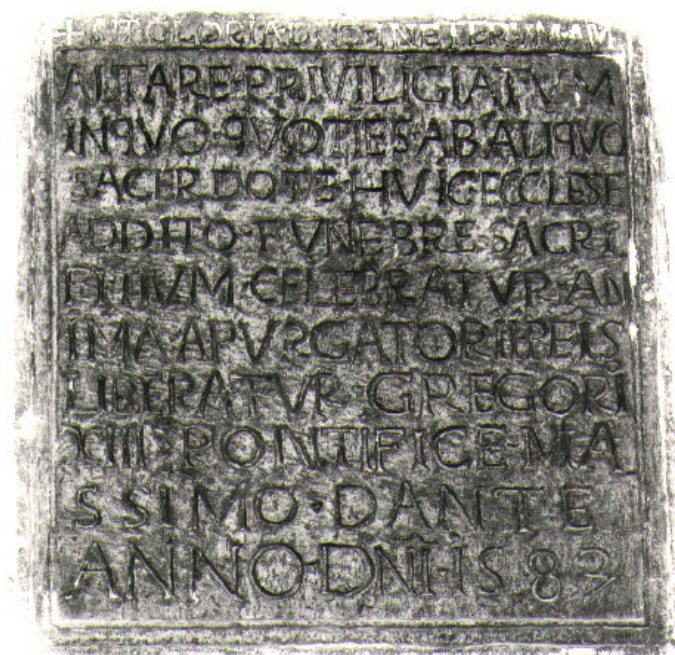 ALTARE·PRIVILIGIATVM
INQVO·QVOTIES·AB·ALIQVO
SACERDOTE·HVIC·ECCLESE
ADDITO·FVNEBRE·SACRI
FITIVM·CELEBRATVR·AN
IMA·APVRGATORII·PEIS
LIBERATVR·GREGORI
XIII·PONTIFICE·MA
SSIMO·DANTE
ANNO·DNI·IS83